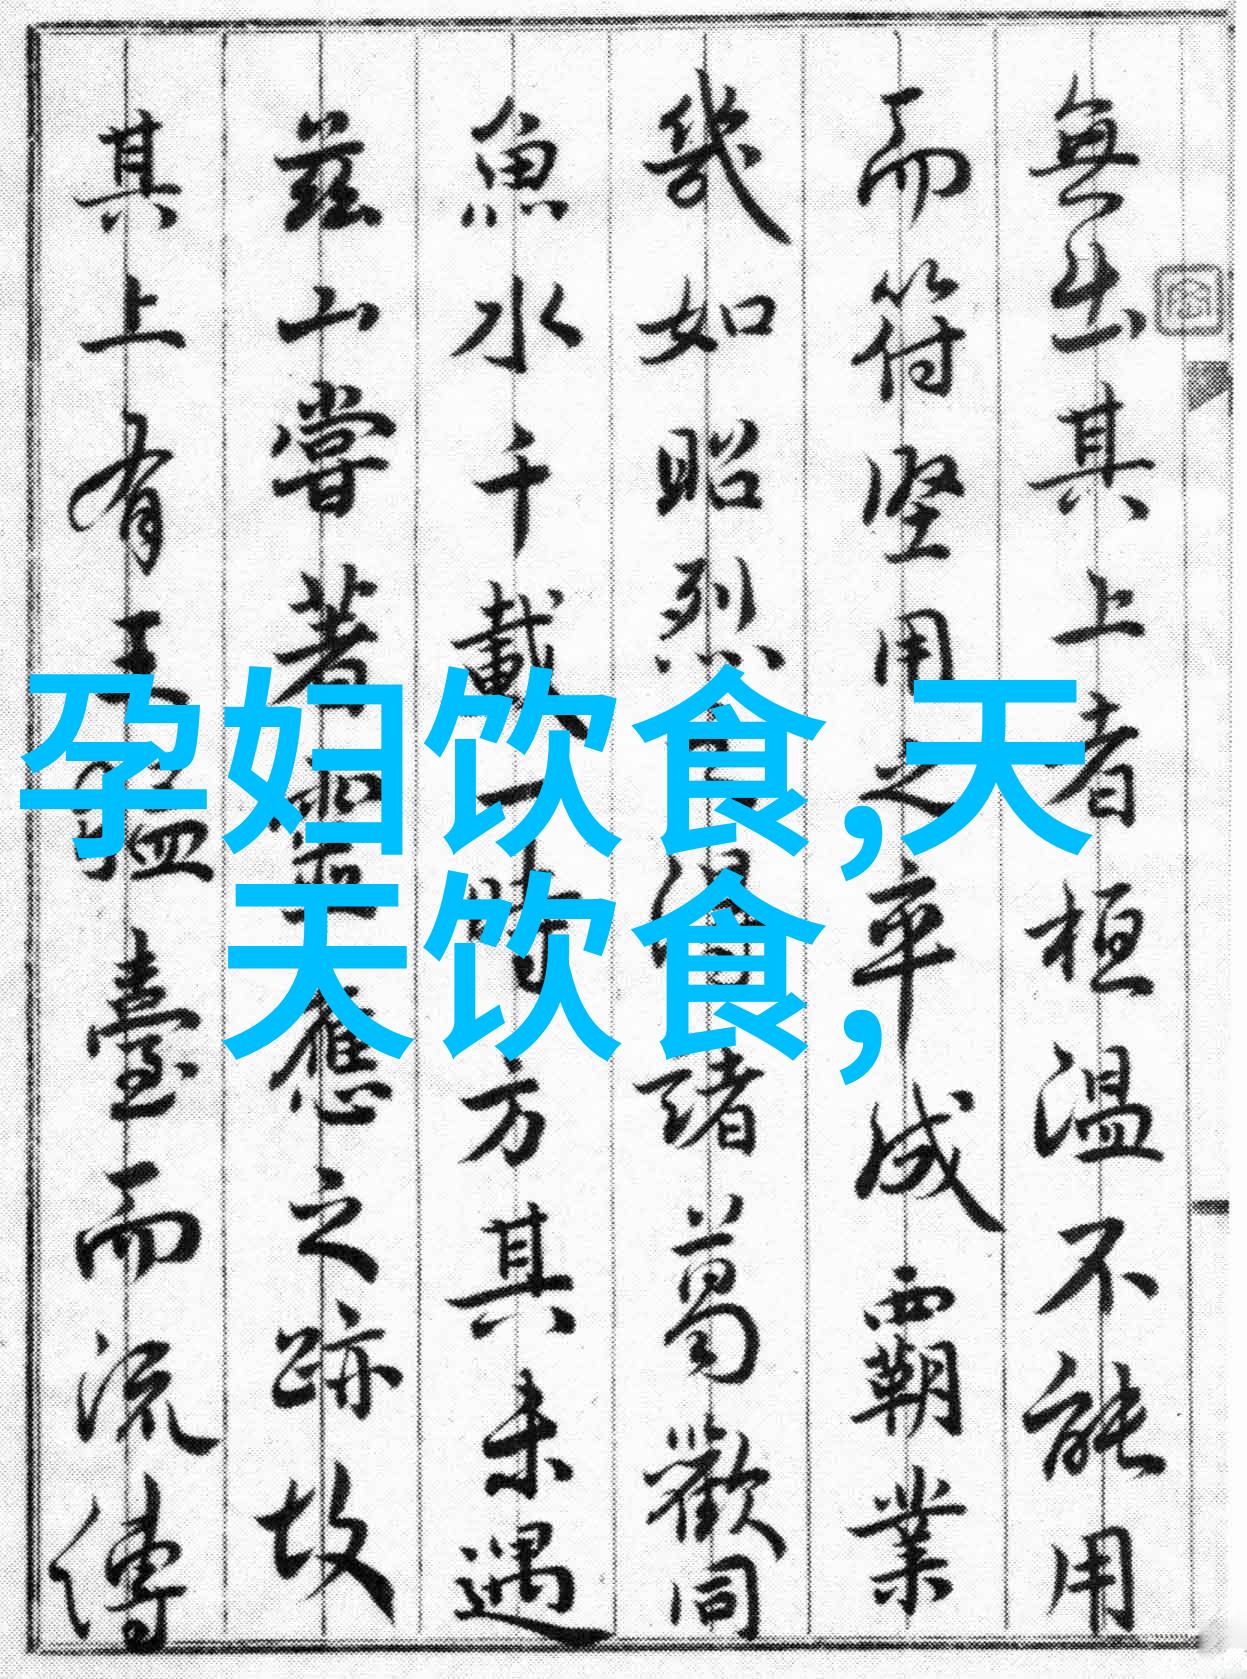 孕妇饮食,天
天饮食,
無出其上者桓温不能用
而符坚用之卒成覇業
幾如昭烈諸葛歡同
魚水千載一時方其未遇
茲山嘗著靈應之跡故
其上有王猛臺而流傳